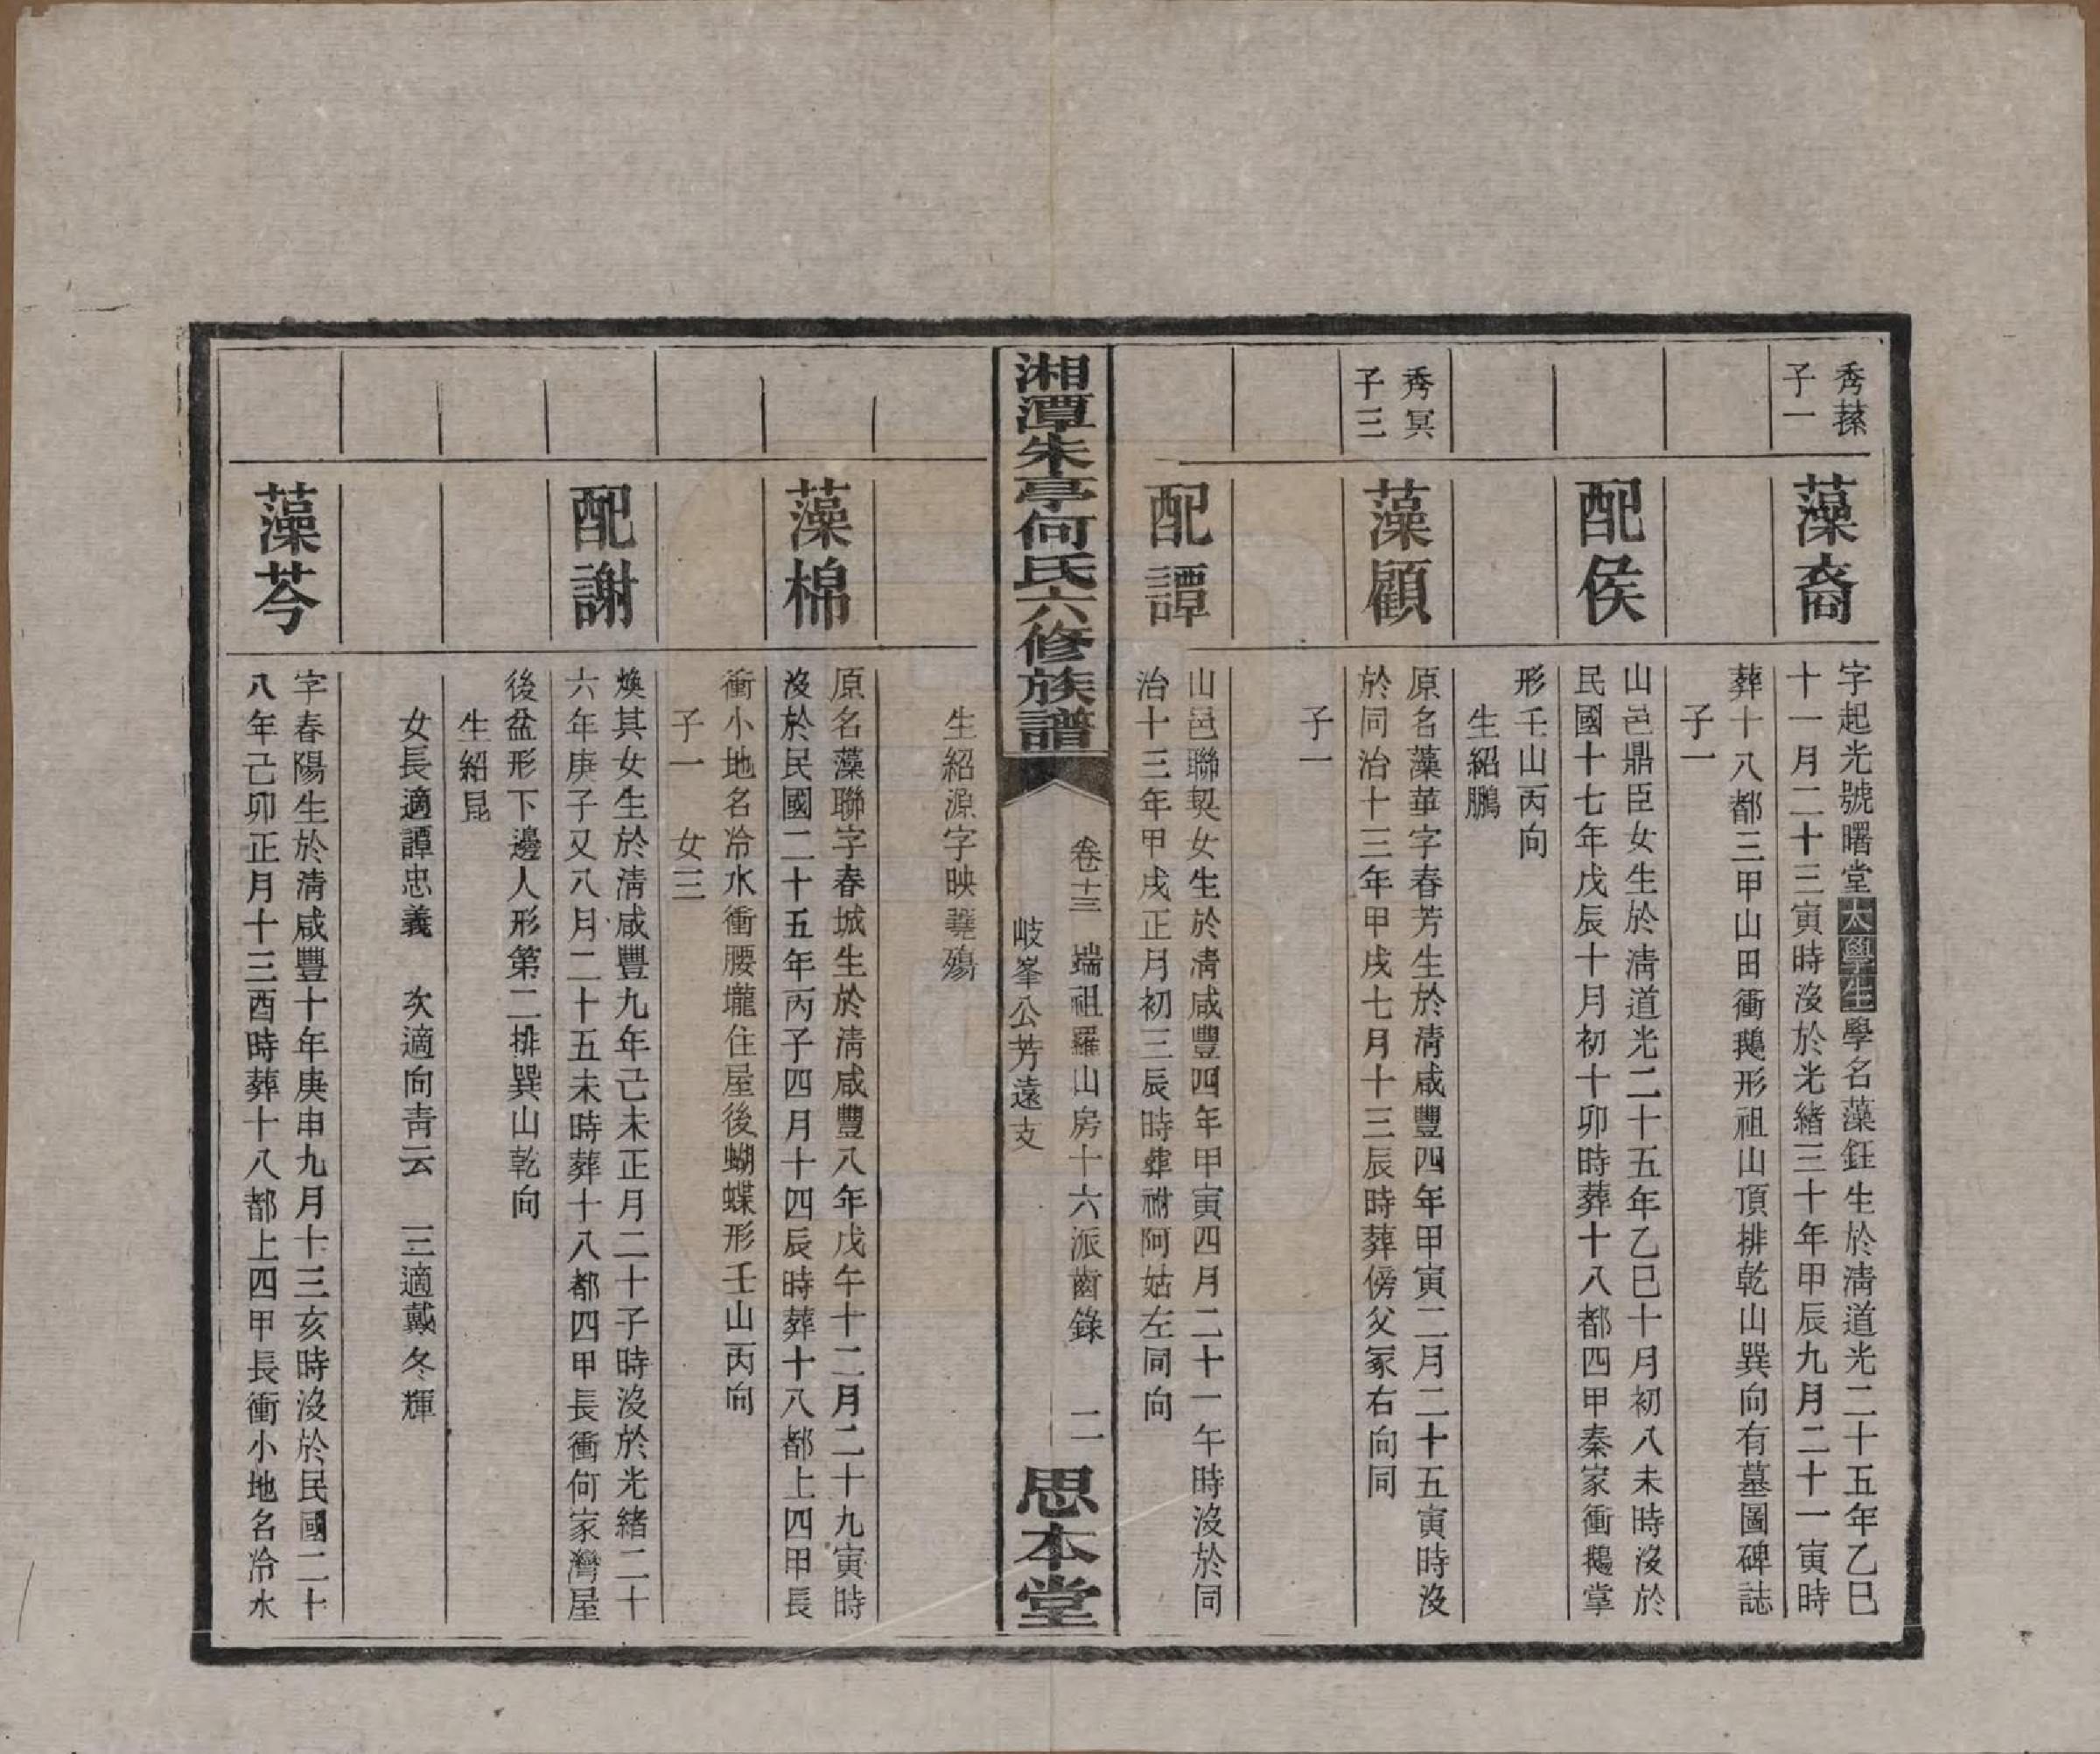 秀䕜
子一
藻裔
字起光號曙堂太學生學名藻鈺生於清道光二十五年乙巳
十一月二十三寅時沒於光緒三十年甲辰九月二十一寅時
葬十八都三甲山田衝鵝形祖山頂排乾山巽向有墓圖碑誌
子一
配侯
山邑鼎臣女生於清道光二十五年乙巳十月初八未時沒於
民國十七年戊辰十月初十卯時葬十八都四甲秦家衝鵝掌
形壬山丙向
生紹鵬
秀冥
子三
藻顧
原名藻華字春芳生於清咸豐四年甲寅二月二十五寅時沒
於同治十三年甲戌七月十三辰時葬傍父冢右向同
子一
配譚
山邑聯契女生於清咸豐四年甲寅四月二十一午時沒於同
治十三年甲戌正月初三辰時葬祔阿姑左同向
湘潭朱亭何氏六修族譜
卷十三 端祖羅山房十六派齒錄 二
岐峯公芳遠支
思本堂
生紹源字映蕘殤
藻棉
原名藻聯字春城生於清咸豐八年戊午十二月二十九寅時
沒於民國二十五年丙子四月十四辰時葬十八都上四甲長
衝小地名冷水衝腰壠住屋後蝴蝶形壬山丙向
子一 女三
配謝
煥其女生於清咸豐九年己未正月二十子時沒於光緒二十
六年庚子又八月二十五未時葬十八都四甲長衝何家灣屋
後盆形下邊人形第二排巽山乾向
生紹昆
女長適譚忠義 次適向青云 三適戴冬輝
藻芩
字春陽生於清咸豐十年庚申九月十三亥時沒於民國二十
八年己卯正月十三酉時葬十八都上四甲長衝小地名冷水